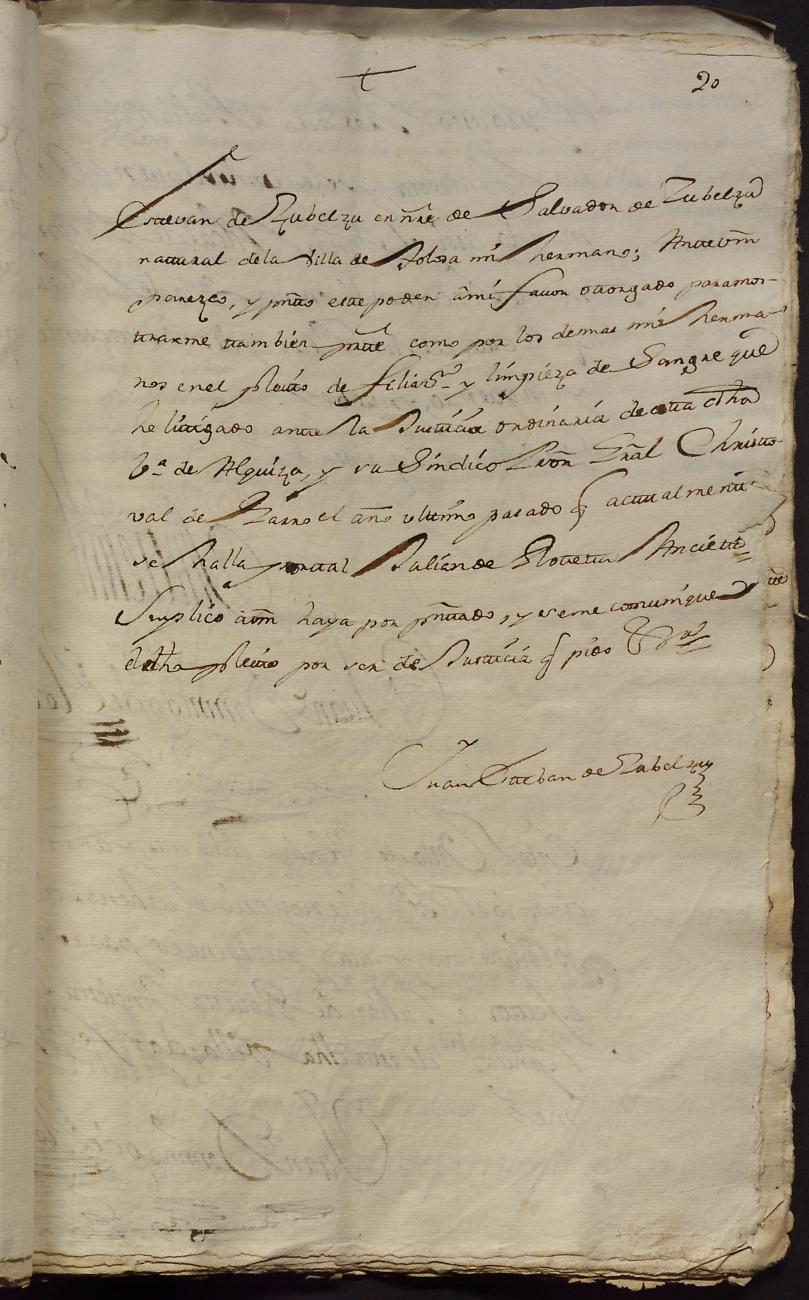 20
Estevan de Zubelzu en nre de Salvador de Zubelzu
natural de la Villa de Tolosa mi hermano; Ante vm
parezco, y pnto este poder âmi favor otorgado para mos-
trarme tambien pnte como por los demas mis herma-
nos en el pleito de filiaon y limpieza de Sangre que
he litigado ante la Justicia ordinaria de esta dha
va de Alquiza, y su Sindico Pror Gral Christo-
val de el año ultimo pasado q actualmente
se halla por tal Julian de Ancieta
Suplico avm haya por pntado, y se me comunique
dho pleito por ser de Justicia q pido
Juan Esteban de Zubelzu